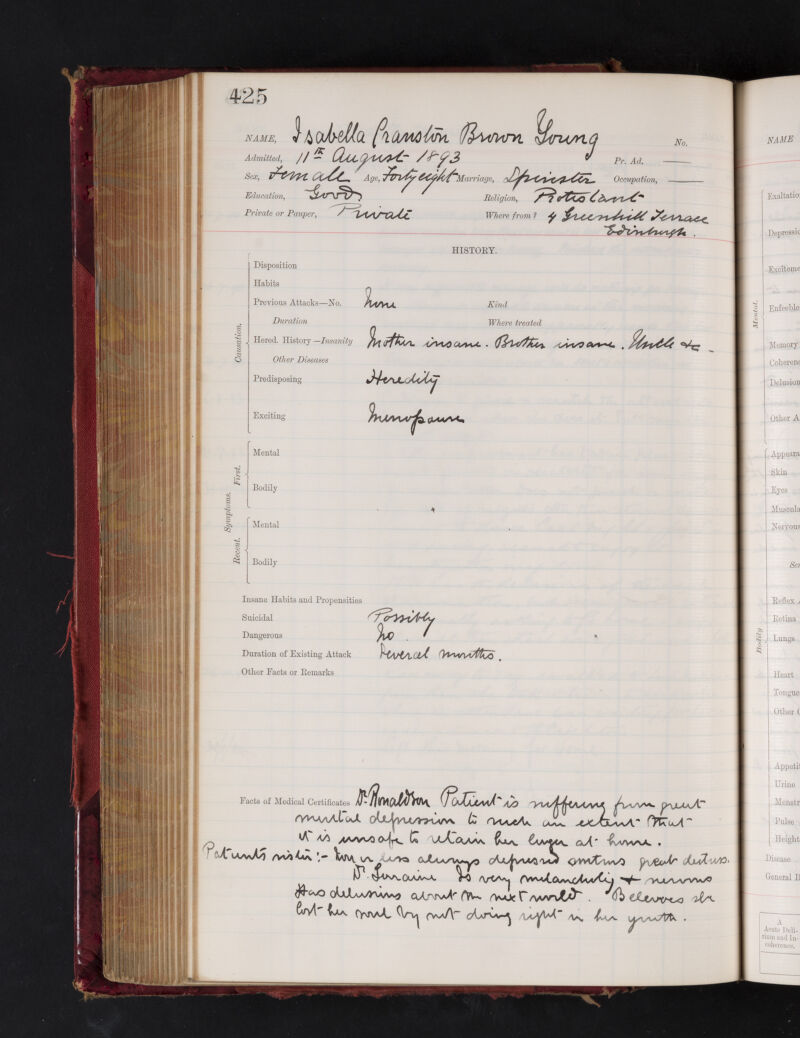 425
NAME, Isabella Cranston Brown Young No.
Admitted, 11th August 1893 Pr. Ad.
Sex, Female Age, Forty eight Marriage, Spinster Occupation,
Education, Good Religion, Protestant
Private or Pauper, Private Where from? 4 Greenhill Terrace
Edinburgh.
HISTORY.
Causation.
Disposition
Habits
Previous Attacks—No. None Kind
Duration Where treated
Hered. History—Insanity Mother insane. Brother insane. Uncle &c
Other Diseases
Predisposing Heredity
Exciting Menopause
Symptoms.
First.
Mental
Bodily
Recent.
Mental
Bodily
Insane Habits and Propensities
Suicidal Possibly
Dangerous No.
Duration of Existing Attack Several months.
Other Facts or Remarks
Facts of Medical Certificates Dr. Ronaldson Patient is suffering from great
mental depression to such an extent that
it is unsafe to retain her longer at home.
Patient's sister:- always depressed great distress.
Dr. Lorraine Is very melancholy & nervous
Has delusions about the next world. Believes she
lost her soul by not doing right in her youth.
NAME
Mental.
Exaltatio
Depressio
Exciteme
Enfeeble
Memory
Coherenc
Delusion
Other A
Bodily
Appeara
Skin
Eyes
Muscula
Nervous
Reflex
Retina
Lungs
Heart
Tongue
Other (
Appetit
Urine
Menstr
Pulse
Height
Disease
General
A
Acute Deli-
rium and In-
coherence.